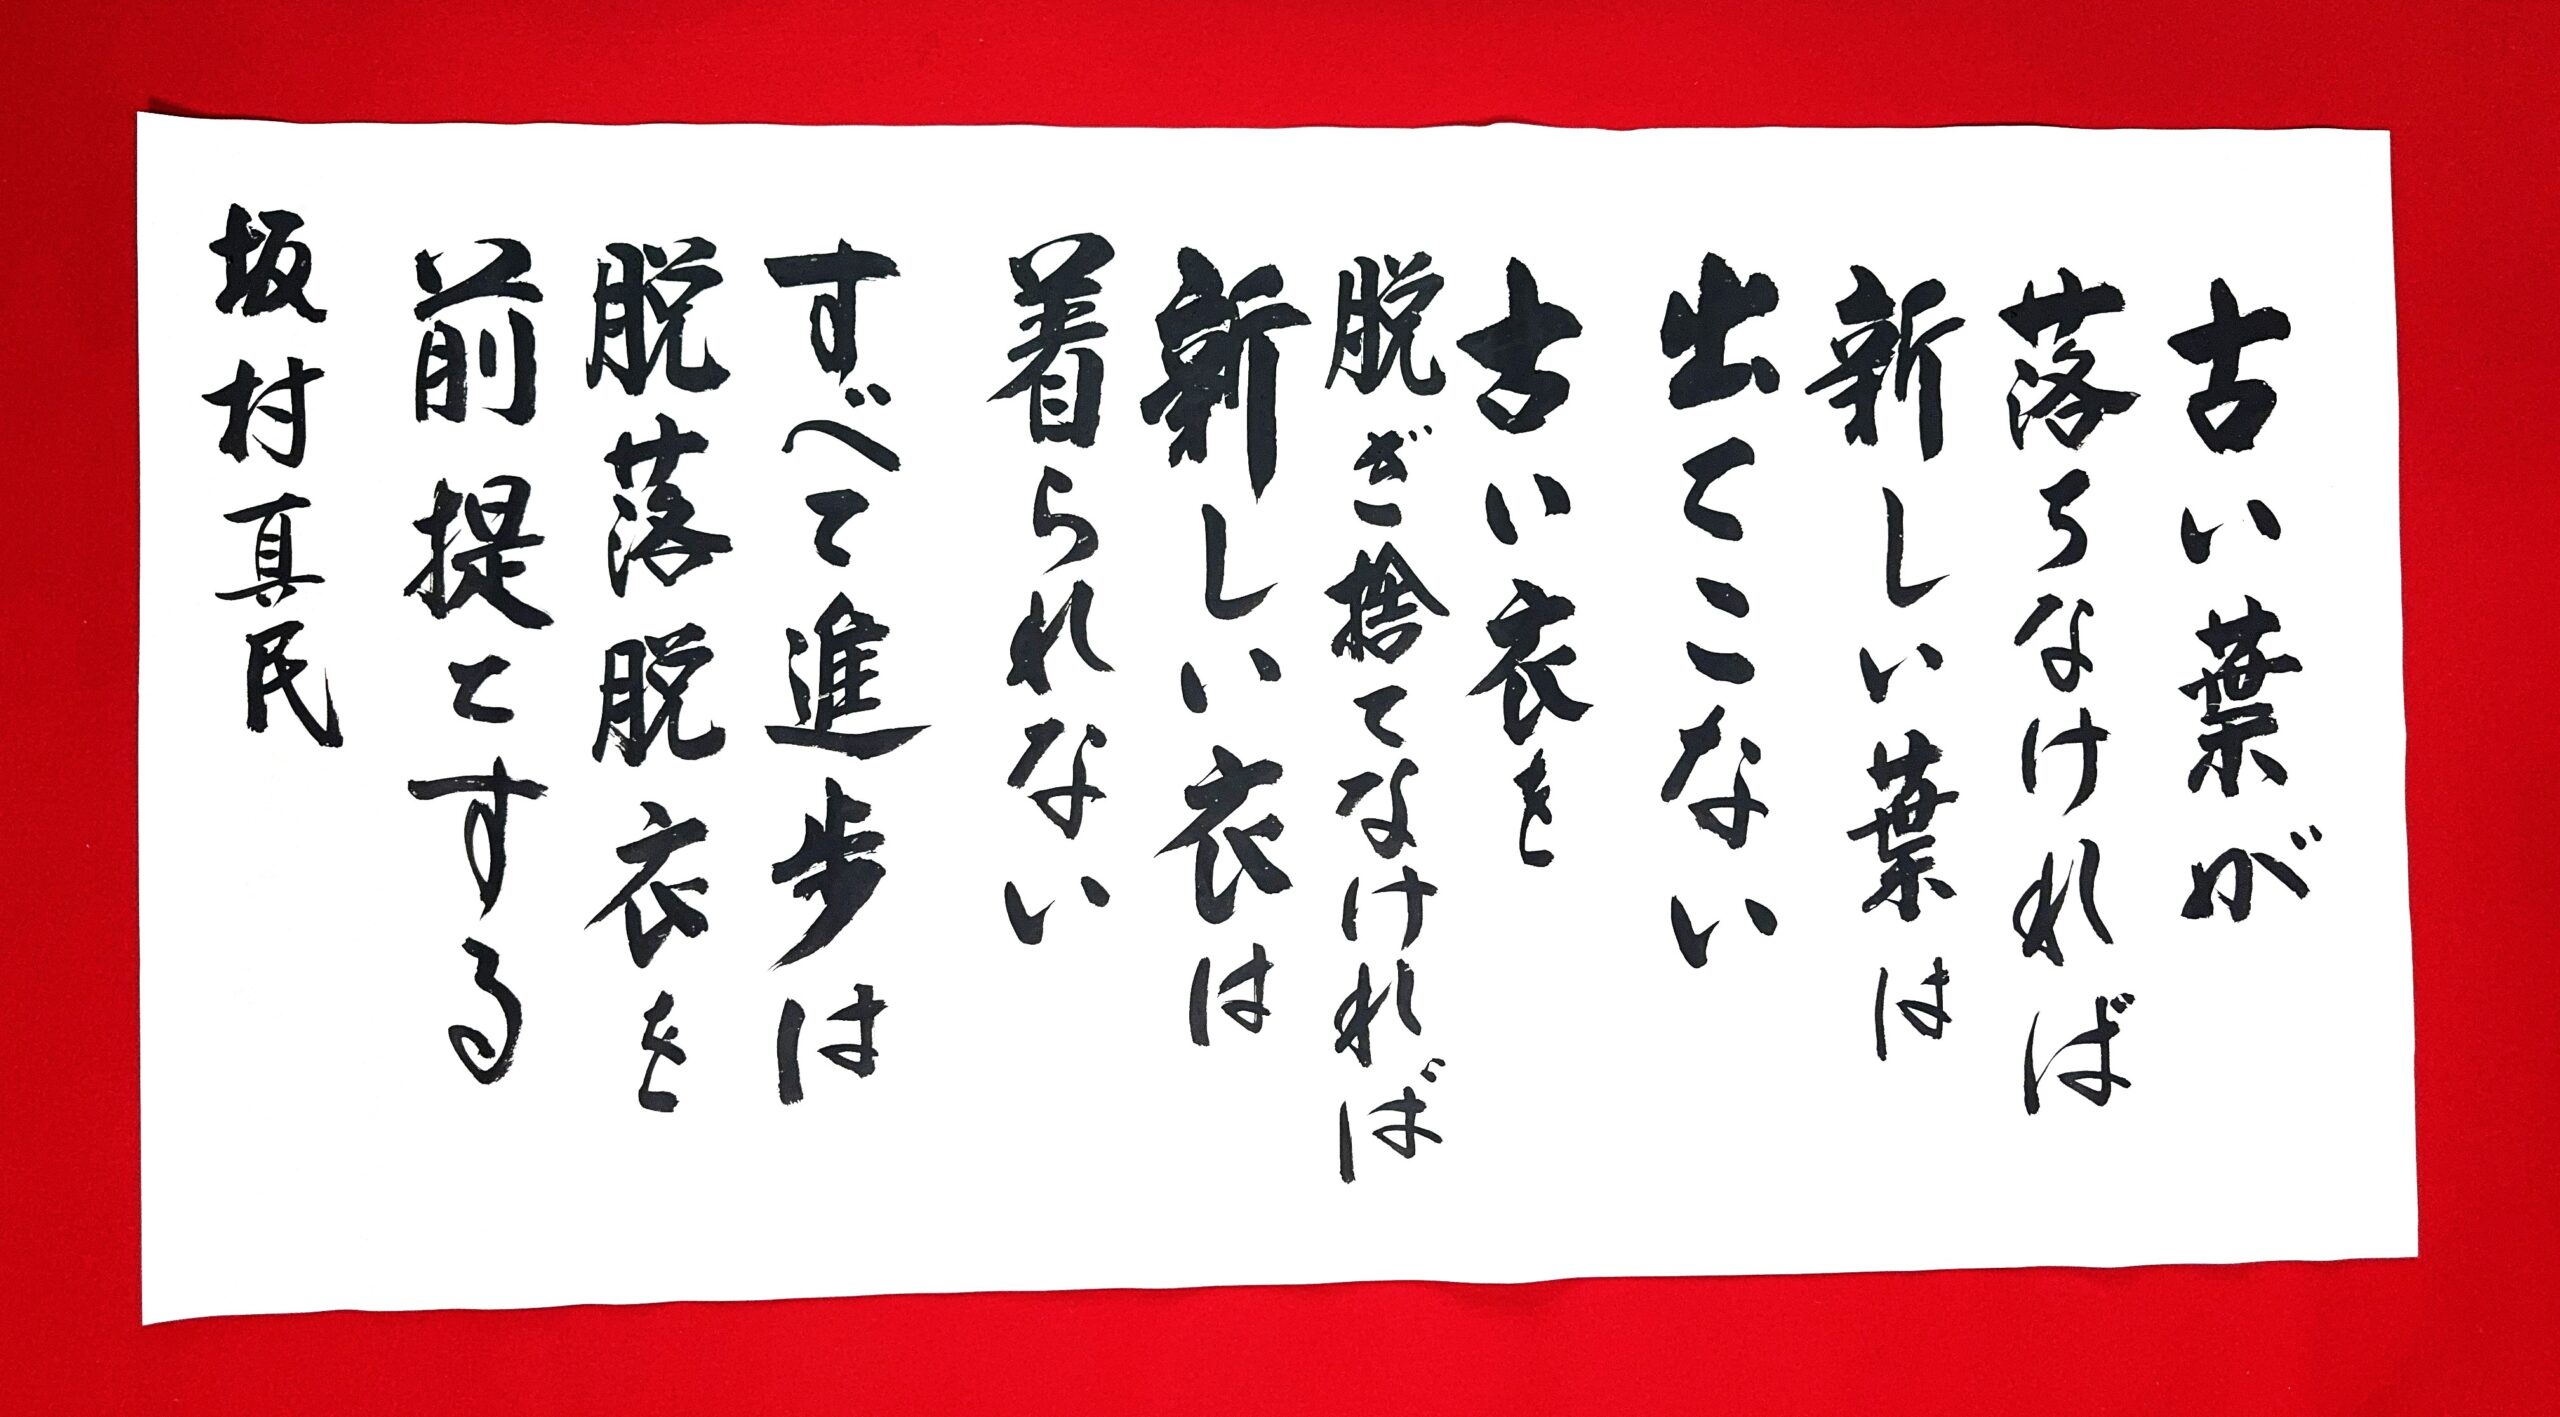 古い葉が
落ちなければ
新しい葉は
出てこない
古い衣を
脱ぎ捨てなければ
新しい衣は
着られない
すべて進歩は
脱落脱衣を
前提とする
坂村真民